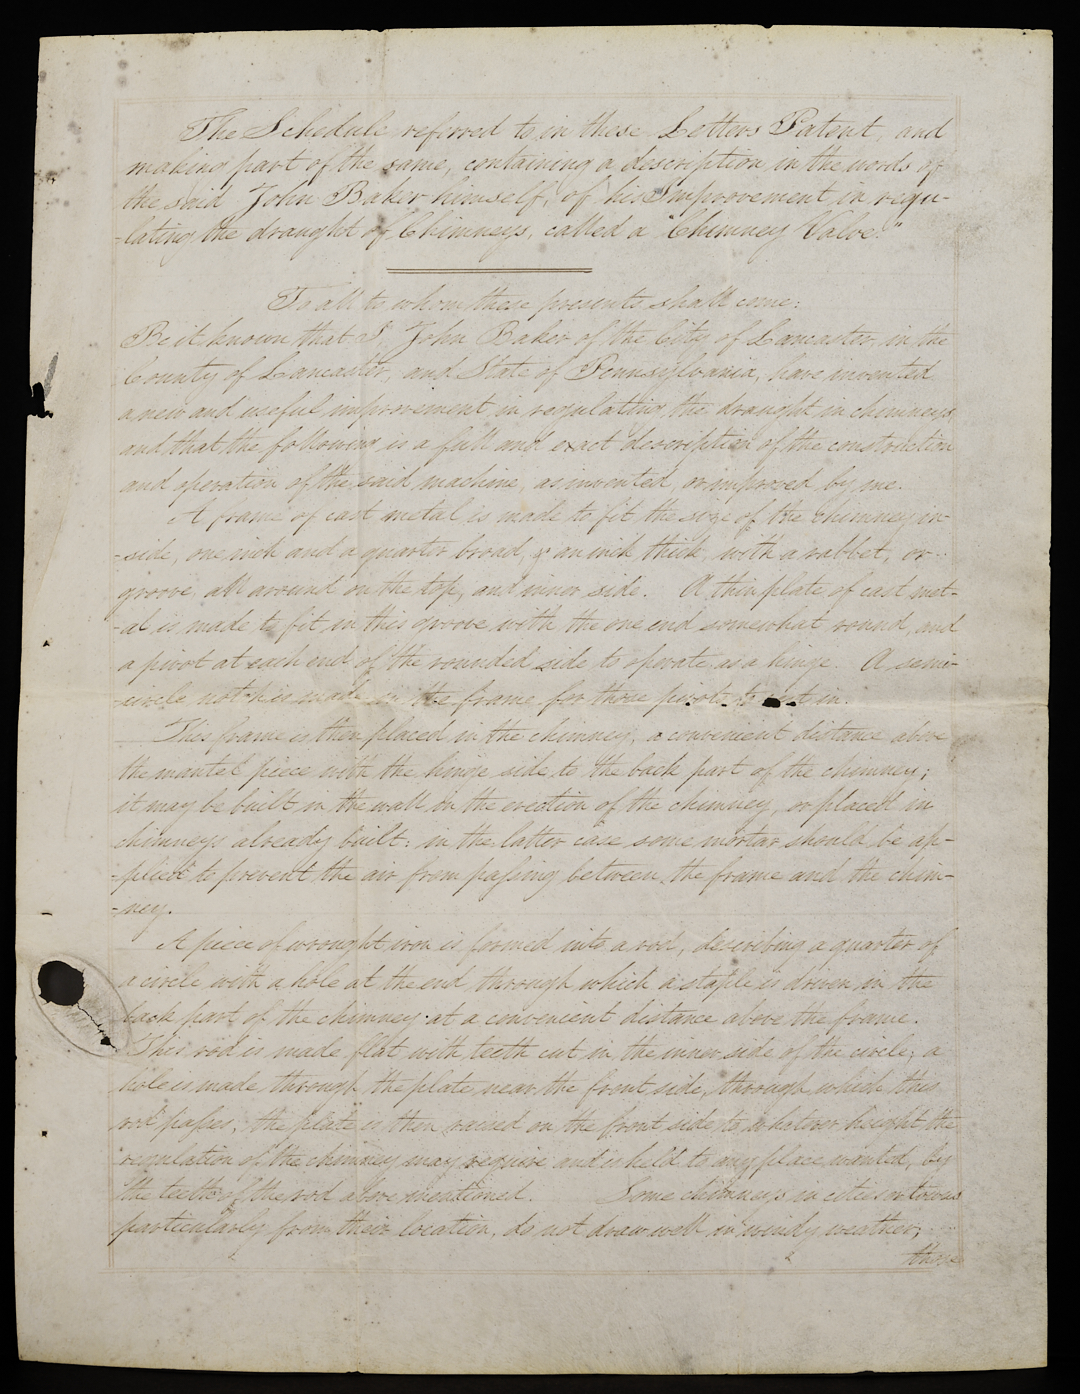 The Schedule referred to in these Letters Patent, and
making part of the same, containing a description in the words of
the said John Baker himself, of his Improvement in regu-
-lating the draught of Chimneys, called a "Chimney Valve."
To all to whom these presents shall come:
Be it known that I, John Baker of the City of Lancaster, in the
County of Lancaster, and State of Pennsylvania, have invented
a new and useful improvement in regulating the draught in chimneys,
and that the following is a full and exact description of the construction
and operation of the said machine, as invented, or improved by me.
A frame of cast metal is made to fit the size of the chimney in-
-side, one inch and a quarter broad, & an inch thick, with a rabbet, or
groove, all around on the top, and inner side. A thin plate of cast met-
-al is made to fit in this groove with the one end somewhat round, and
a pivot at each end of the rounded side to operate as a hinge. A semi-
-circle notch is made in the frame for those pivots to in.
This frame is then placed in the chimney, a convenient distance above
the mantel piece with the hinge side to the back part of the chimney;
it may be built in the wall in the erection of the chimney, or placed in
chimneys already built: in the latter case some mortar should be ap-
-plied to prevent the air from passing between the frame and the chim-
-ney.
A piece of wrought iron is formed into a rod, describing a quarter of
a circle with a hole at the end through which a staple is driven in the
back part of the chimney at a convenient distance above the frame.
This rod is made flat with teeth cut in the inner side of the circle; a
hole is made through the plate near the front side, through which this
rod passes; the plate is then raised on the front side to whatever height the
regulation of the chimney may require and is held to any place wanted, by
the teeth of the rod above mentioned. Some chimneys in cities or towns
particularly from their location, do not draw well in windy weather;
those